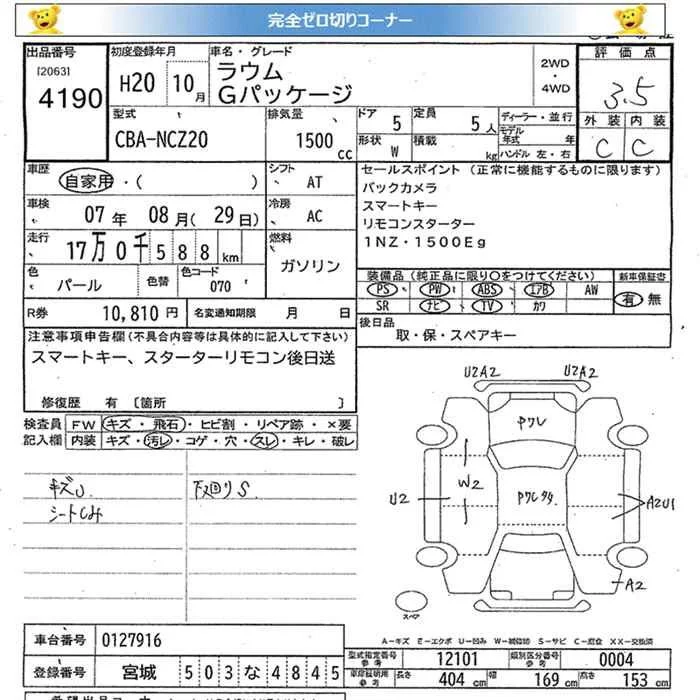 完全ゼロ切りコーナー
出品番号 初度登録年月 車名・グレード 評価点
[2063] 4190 H20 10月 ラウム Gパッケージ 2WD・4WD 3.5
型式 排気量 ドア 5 定員 5人 ディーラー・並行 外装 内装
CBA-NCZ20 1500cc 形状 W 積載 kg モデル年式 年 ハンドル 左・右 C C
車歴 自家用・( ) シフト AT セールスポイント (正常に機能するものに限ります)
車検 07年 08月(29日) 冷房 AC バックカメラ
スマートキー
リモコンスターター
1NZ・1500Eg
走行 17万0千588km 燃料 ガソリン
色 パール 色替 色コード 070
装備品 (純正品に限り○をつけてください) 新車保証書
PS PW ABS エアB AW 有・無
SR ナビ TV カワ
R券 10,810円 名変通知期限 月 日
後日品 取・保・スペアキー
注意事項申告欄(不具合内容等は具体的に記入して下さい)
スマートキー、スターターリモコン後日送
修復歴 有 〔箇所 〕
検査員記入欄 FW キズ・飛石・ヒビ割・リペア跡・×要
内装 キズ・汚レ・コゲ・穴・スレ・キレ・破レ
キズU 下廻りS
シートしみ
U2A2 U2A2
Pワレ
W2
U2 A2U1
A2
スペア
A-キズ E-エクボ U-凹み W-補修跡 S-サビ C-腐食 XX-交換済
車台番号 0127916
型式指定番号 参考 12101 類別区分番号 参考 0004
登録番号 宮城 503な4845
車庫証明用 参考 長さ 404cm 幅 169cm 高さ 153cm